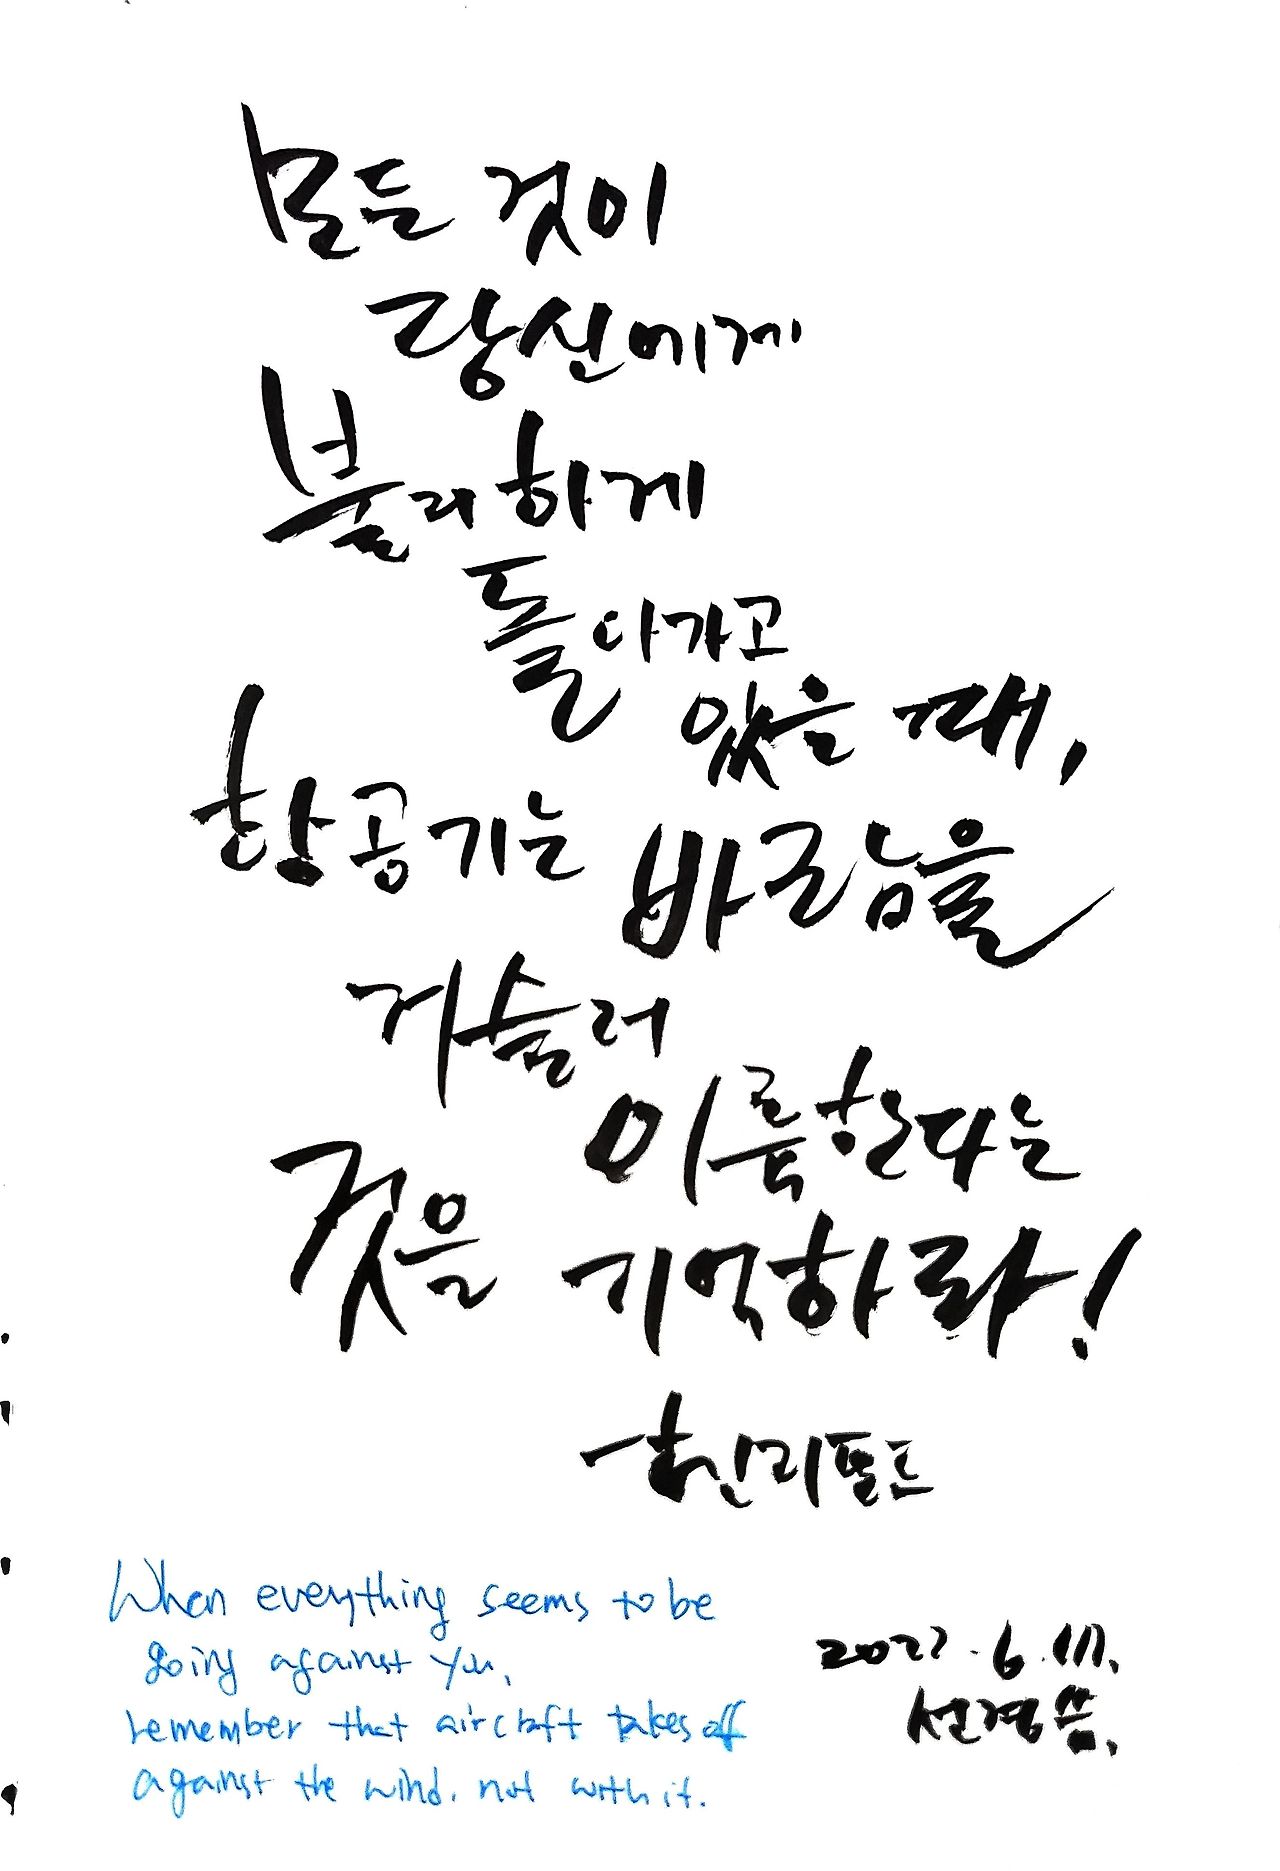 모든 것이
당신에게
불리하게
돌아가고
있을 때,
항공기는 바람을
거슬러
이륙한다는
것을 기억하라!
헨리포드
When everything seems to be
going against you,
remember that aircraft takes off
against the wind, not with it.
선경 씀.